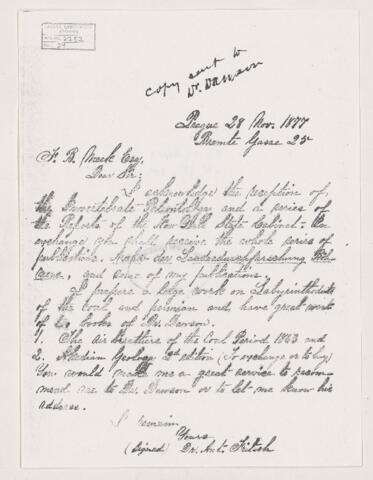 2252
24
copy sent to
Dr. Dawson
Prague 28 Nov. 1877
Brente Gasse 25
F. B. Meek Esq.
Dear Sir:
I acknowledge the reception of
the Invertebrate Paleontology and a series of
the Reports of the New York State Cabinet. In
exchange you shall receive the whole series of
publications. Archiv der Landesdurchforschung Böh-
mens, and some of my publications.
I prepare a large work on Labyrinthodonts
of the coal and permian and have great want
of two books of Dr. Dawson.
1. The air breathers of the Coal Period 1863 and
2. Acadian Geology 2d edition (To exchange or to buy)
You would make me a great service to recom-
mend me to Dr. Dawson or to let me know his
address.
I remain
Yours
(signed) Dr. Ant. Fritsch